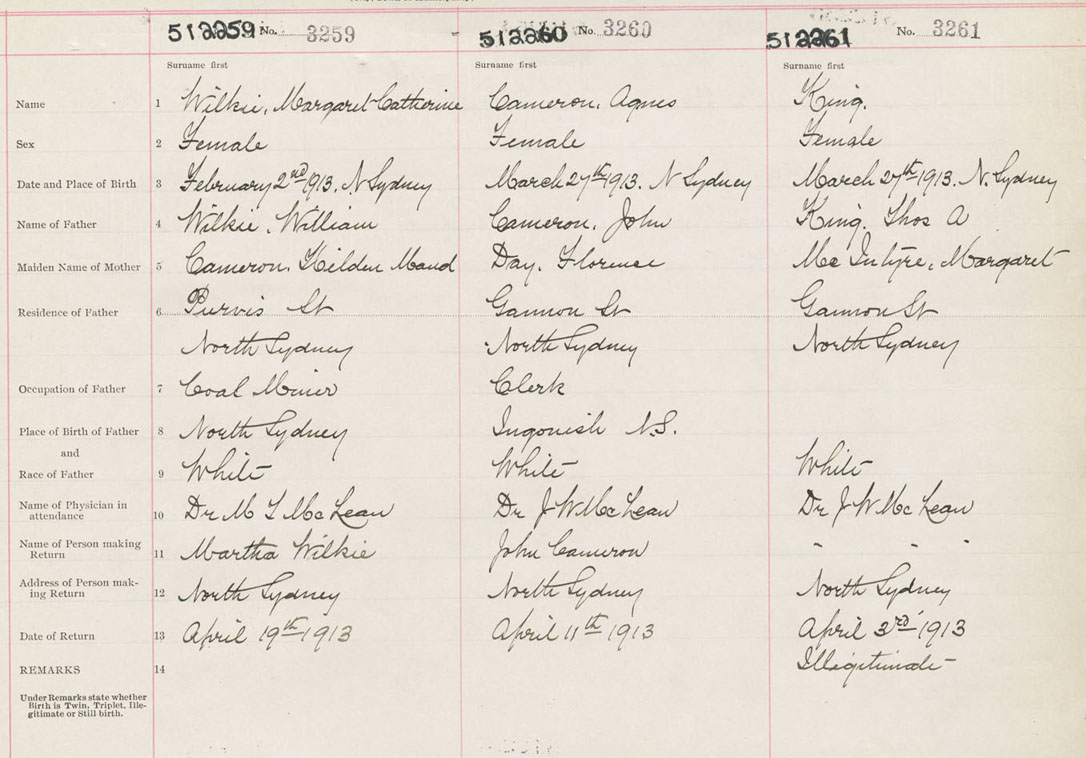 512259 No. 3259 512260 No. 3260 512261 No. 3261
Surname first Surname first Surname first
Name 1 Wilkie, Margaret Catherine Cameron, Agnes King.
Sex 2 Female Female Female
Date and Place of Birth 3 February 2nd 1913. N Sydney March 27th 1913. N Sydney March 27th 1913. N. Sydney
Name of Father 4 Wilkie, William Cameron, John King, Thos A
Maiden Name of Mother 5 Cameron, Hilden Maud Day, Florence Mc Intyre, Margaret
Residence of Father 6 Purvis St Gannon St Gannon St
North Sydney North Sydney North Sydney
Occupation of Father 7 Coal Miner Clerk
Place of Birth of Father 8 North Sydney Ingonish N.S.
and
Race of Father 9 White White White
Name of Physician in
attendance 10 Dr M McLean Dr J W McLean Dr J W McLean
Name of Person making
Return 11 Martha Wilkie John Cameron " " "
Address of Person mak-
ing Return 12 North Sydney North Sydney North Sydney
Date of Return 13 April 19th 1913 April 11th 1913 April 3rd 1913
REMARKS 14 Illegitimate
Under Remarks state whether
Birth is Twin, Triplet, Ille-
gitimate or Still birth.